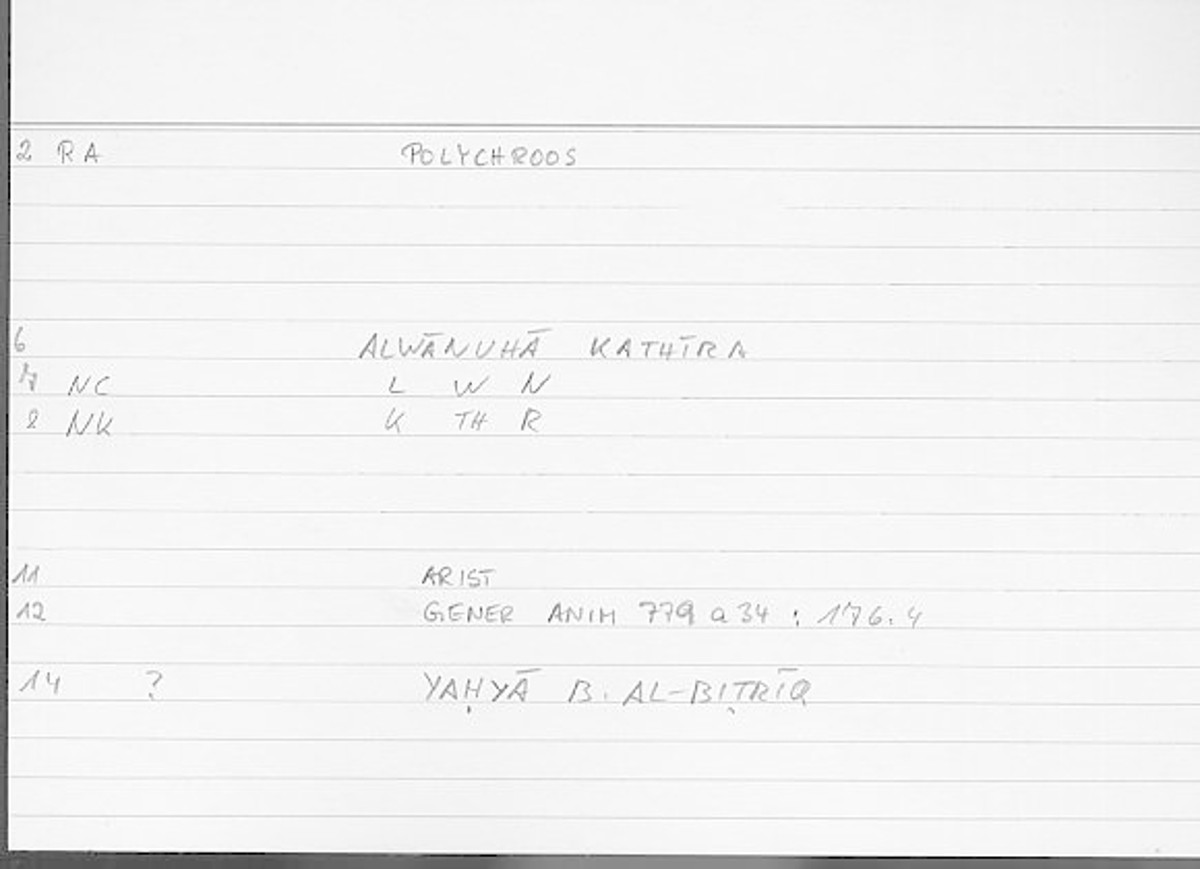 2 RA POLYCHROOS
6 ALWĀNUHĀ KATHĪRA
7 NC L W N
8 NK K TH R
11 ARIST
12 GENER ANIM 779 a 34 : 176.4
14 ? YAḤYĀ B. AL-BIṬRĪQ